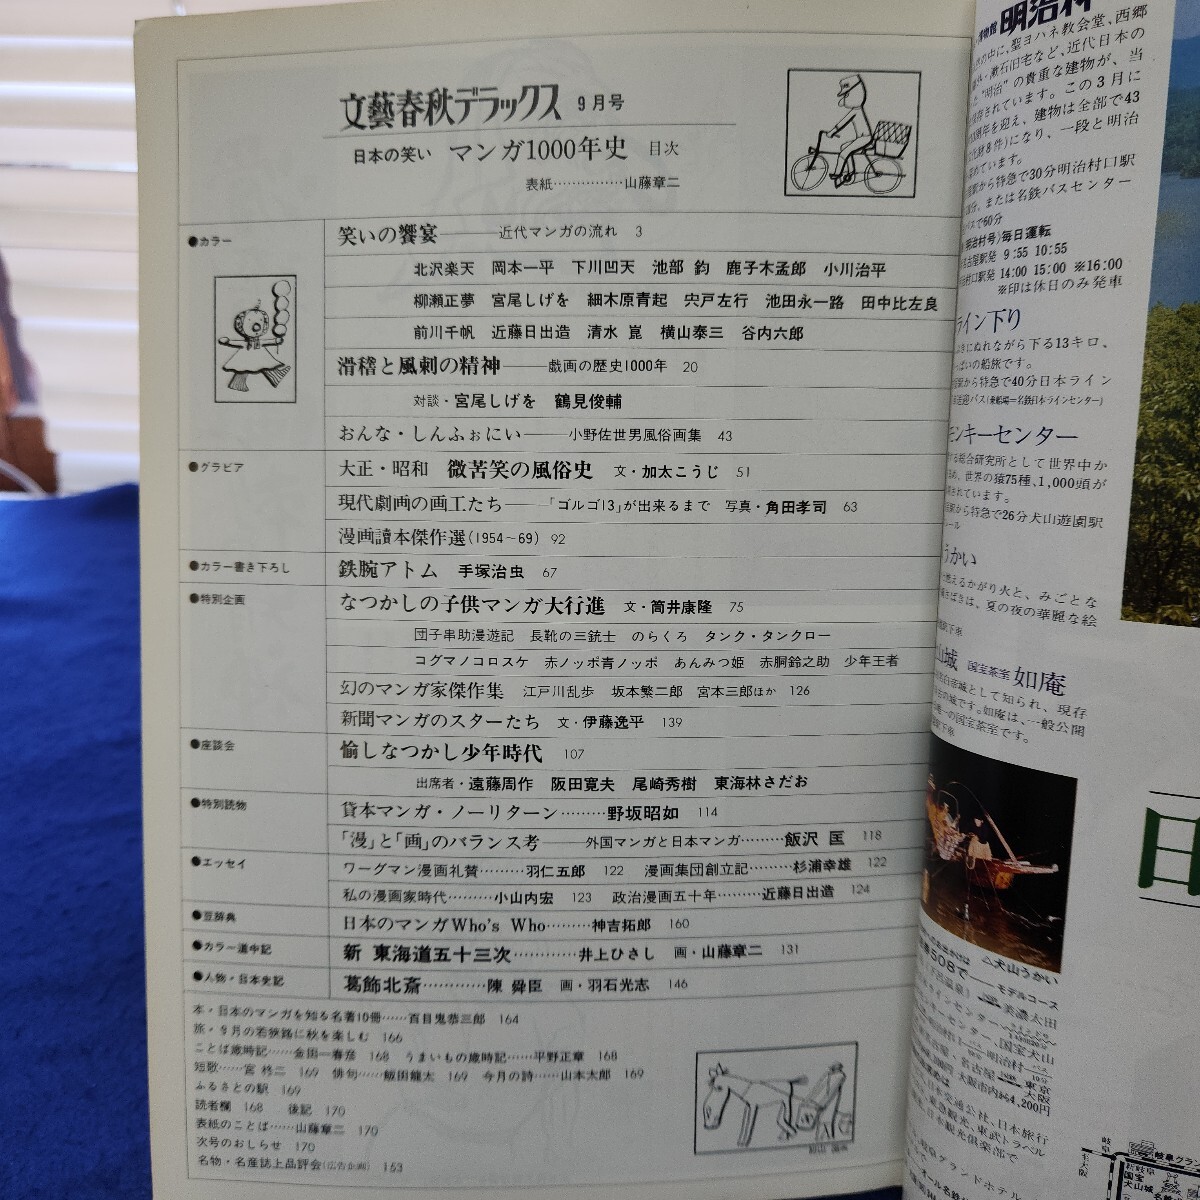 文藝春秋デラックス 9月号
日本の笑い マンガ1000年史 目次
表紙……………山藤章二
●カラー
笑いの饗宴―――近代マンガの流れ 3
北沢楽天 岡本一平 下川凹天 池部 鈞 鹿子木孟郎 小川治平
柳瀬正夢 宮尾しげを 細木原青起 宍戸左行 池田永一路 田中比左良
前川千帆 近藤日出造 清水 崑 横山泰三 谷内六郎
滑稽と風刺の精神――戯画の歴史1000年 20
対談・宮尾しげを 鶴見俊輔
おんな・しんふぉにい――小野佐世男風俗画集 43
●グラビア
大正・昭和 微苦笑の風俗史 文・加太こうじ 51
現代劇画の画工たち――「ゴルゴ13」が出来るまで 写真・角田孝司 63
漫画讀本傑作選(1954〜69) 92
●カラー書き下ろし
鉄腕アトム 手塚治虫 67
●特別企画
なつかしの子供マンガ大行進 文・筒井康隆 75
団子串助漫遊記 長靴の三銃士 のらくろ タンク・タンクロー
コグマノコロスケ 赤ノッポ青ノッポ あんみつ姫 赤胴鈴之助 少年王者
幻のマンガ家傑作集 江戸川乱歩 坂本繁二郎 宮本三郎ほか 126
新聞マンガのスターたち 文・伊藤逸平 139
●座談会
愉しなつかし少年時代 107
出席者・遠藤周作 阪田寛夫 尾崎秀樹 東海林さだお
●特別読物
貸本マンガ・ノーリターン………野坂昭如 114
「漫」と「画」のバランス考――外国マンガと日本マンガ………飯沢 匡 118
●エッセイ
ワーグマン漫画礼賛………羽仁五郎 122 漫画集団創立記………杉浦幸雄 122
私の漫画家時代………小山内宏 123 政治漫画五十年………近藤日出造 124
●豆辞典
日本のマンガWho's Who………神吉拓郎 160
●カラー道中記
新 東海道五十三次…………井上ひさし 画・山藤章二 131
●人物・日本史記
葛飾北斎…………陳 舜臣 画・羽石光志 146
本・日本のマンガを知る名著10冊……百目鬼恭三郎 164
旅・9月の若狭路に秋を楽しむ 166
ことば歳時記……金田一春彦 168 うまいもの歳時記……平野正章 168
短歌……宮 柊二 169 俳句……飯田龍太 169 今月の詩……山本太郎 169
ふるさとの駅 169
読者欄 168 後記 170
表紙のことば……山藤章二 170
次号のおしらせ 170
名物・名産誌上品評会(広告企画) 153
明治村
の中に、聖ヨハネ教会堂、西郷
・漱石旧宅など、近代日本の
"明治"の貴重な建物が、当
存されています。この3月に
周年を迎え、建物は全部で43
財8件)になり、一段と明治
めています。
駅から特急で30分明治村口駅
分、または名鉄バスセンター
バスで60分
明治村号)毎日運転
名古屋駅発 9:55 10:55
村口駅発 14:00 15:00 ※16:00
※印は休日のみ発車
ライン下り
きにぬれながら下る13キロ、
っぱいの船旅です。
駅から特急で40分日本ライン
送迎バス(乗船場=名鉄日本ラインセンター)
モンキーセンター
る総合研究所として世界中か
め、世界の猿75種、1,000頭が
されています。
駅から特急で26分犬山遊園駅
ール
うかい
燃えるかがり火と、みごとな
さばきは、夏の夜の華麗な絵
下車
山城 国宝茶室 如庵
白帝城として知られ、現存
の城です。如庵は、一般公開
唯一の国宝茶室です。
下車
△犬山うかい
508で――モデルコース